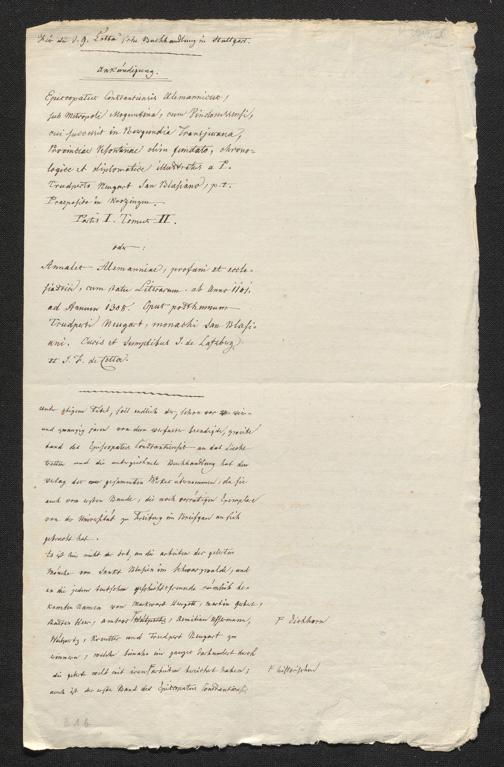 Für die J. G. Cotta'sche Buchhandlung in Stuttgart.
Ankündigung.
Episcopatus Constantiensis Alemannicus,
sub Metropoli Moguntina, cum Vindonissensi,
cui successit in Burgundia Transjurana,
Provinciae Vesontinae olim fundato, chrono-
logice et diplomatice illustratus a P.
Trudperto Neugart San Blasiano, p. t.
Praeposito in Krozingen.
Partis I. Tomus II.
oder:
Annales Alemanniae, profani et eccle-
siastici, cum statu Literarum ab Anno 1101.
ad Annum 1308. Opus posthumum
Trudperti Neugart, monachi San Blasi-
ani. Curis et sumptibus J. de Laßberg
et J. F. de Cotta.
Unter obigem Titel, soll endlich der, schon vor vier-
und zwanzig jaren von dem verfasser beendigte, zweite
band des Episcopatus Constantiensis an das Licht
tretten und die unterzeichnete Buchhandlung hat den
verlag des gesammten Werkes übernommen, da sie
auch vom ersten Bande, die noch vorrätigen Exemplare
von der Universität zu Freiburg im Breisgau an sich
gebracht hat.
Es ist hier nicht der ort, an die arbeiten der gelerten
Mönche von Sanct Blasien im Schwarzwalde, und
an die jedem teutschen geschichtsfreunde rümlich be-
kannten Namen von Marquart Hergott, martin Gerbert,
Rusten Heer, Ambros Eichhorn, Aemilian Ussermann,
F Eichhorn
Kreutter und Trudpert Neugart zu
erinnern, welche beinahe ein ganzes Jarhundert durch
die gelerte welt mit iren arbeiten bereichert haben;
F historischen
auch ist der erste Band des Episcopatus Constantiensis